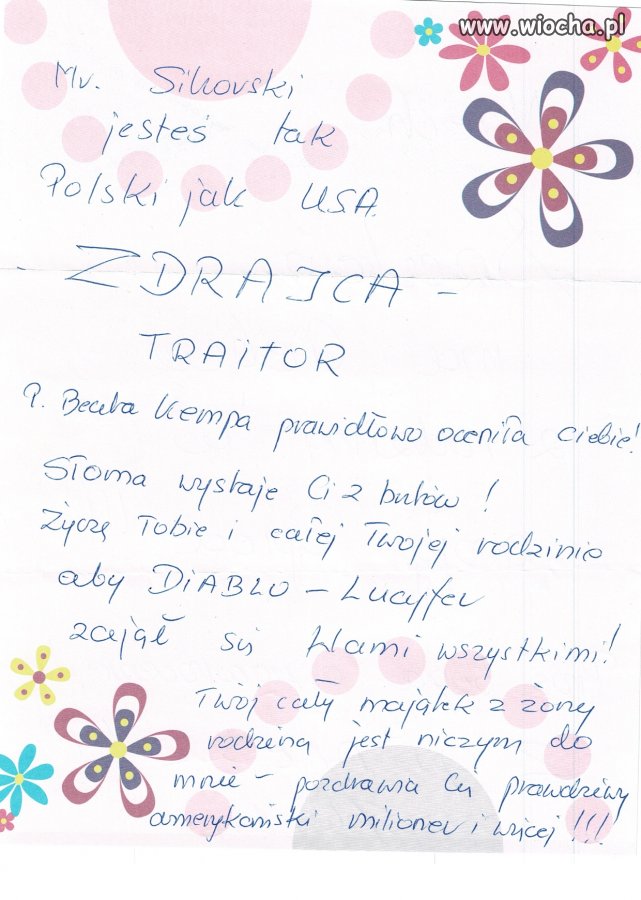 www.wiocha.pl
Mr. Sikorski
jesteś tak
Polski jak U.S.A.
ZDRAJCA -
TRAITOR
P. Beata Kempa prawidłowo oceniła ciebie!
Słoma wystaje Ci z butów!
Życzę Tobie i całej Twojej rodzinie
aby DIABLO - Lucyfer
zajął się Wami wszystkimi!
Twój cały majątek z żony
rodziną jest niczym do
mnie - pozdrawia Cię prawdziwy
amerykański milioner i więcej!!!